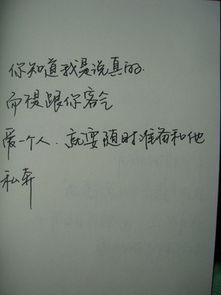 你知道我是说真的.
而很跟你客气
爱一个人.就要随时准备和他
私奔